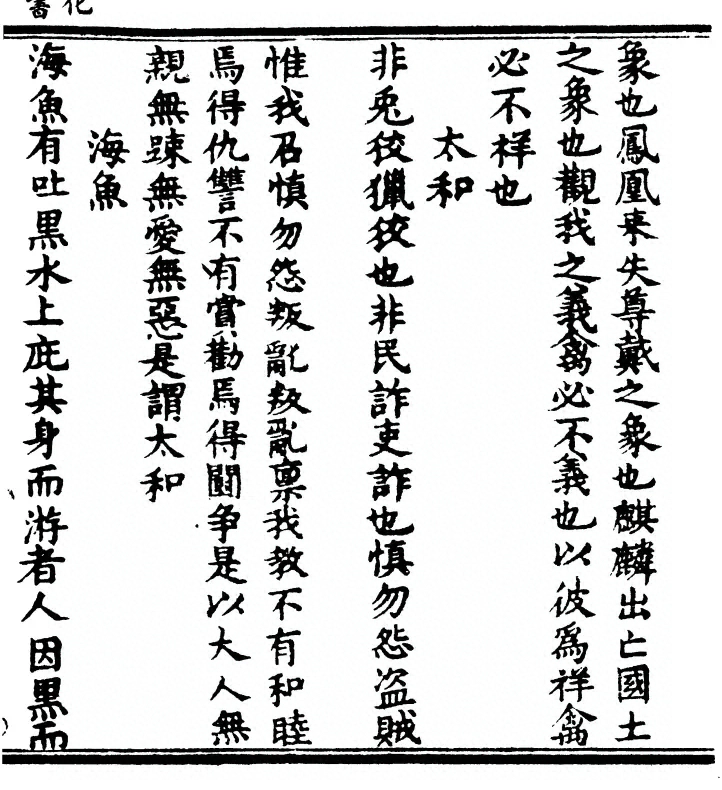 化書
象也鳳凰来失尊戴之象也麒麟出亡國土
之象也觀我之義禽必不義也以彼爲祥禽
必不祥也
太和
非兎狡獵狡也非民詐吏詐也慎勿怨盗賊
惟我召慎勿怨叛亂叛亂禀我教不有和睦
焉得仇讐不有賞勸焉得鬭争是以大人無
親無踈無愛無惡是謂太和
海魚
海魚有吐黒水上庇其身而游者人因黒而